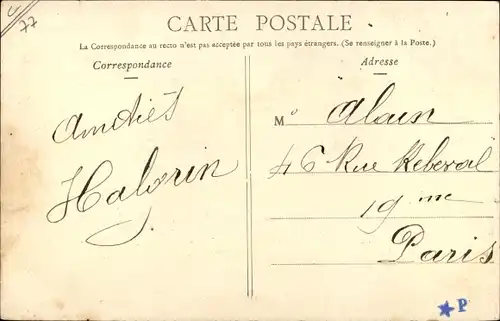 77
CARTE POSTALE
La Correspondance au recto n'est pas acceptée par tous les pays étrangers. (Se renseigner à la Poste.)
Correspondance
Amitiés
Halorin
Adresse
M° Alain
46 Rue Rebeval
19 me
Paris
★P